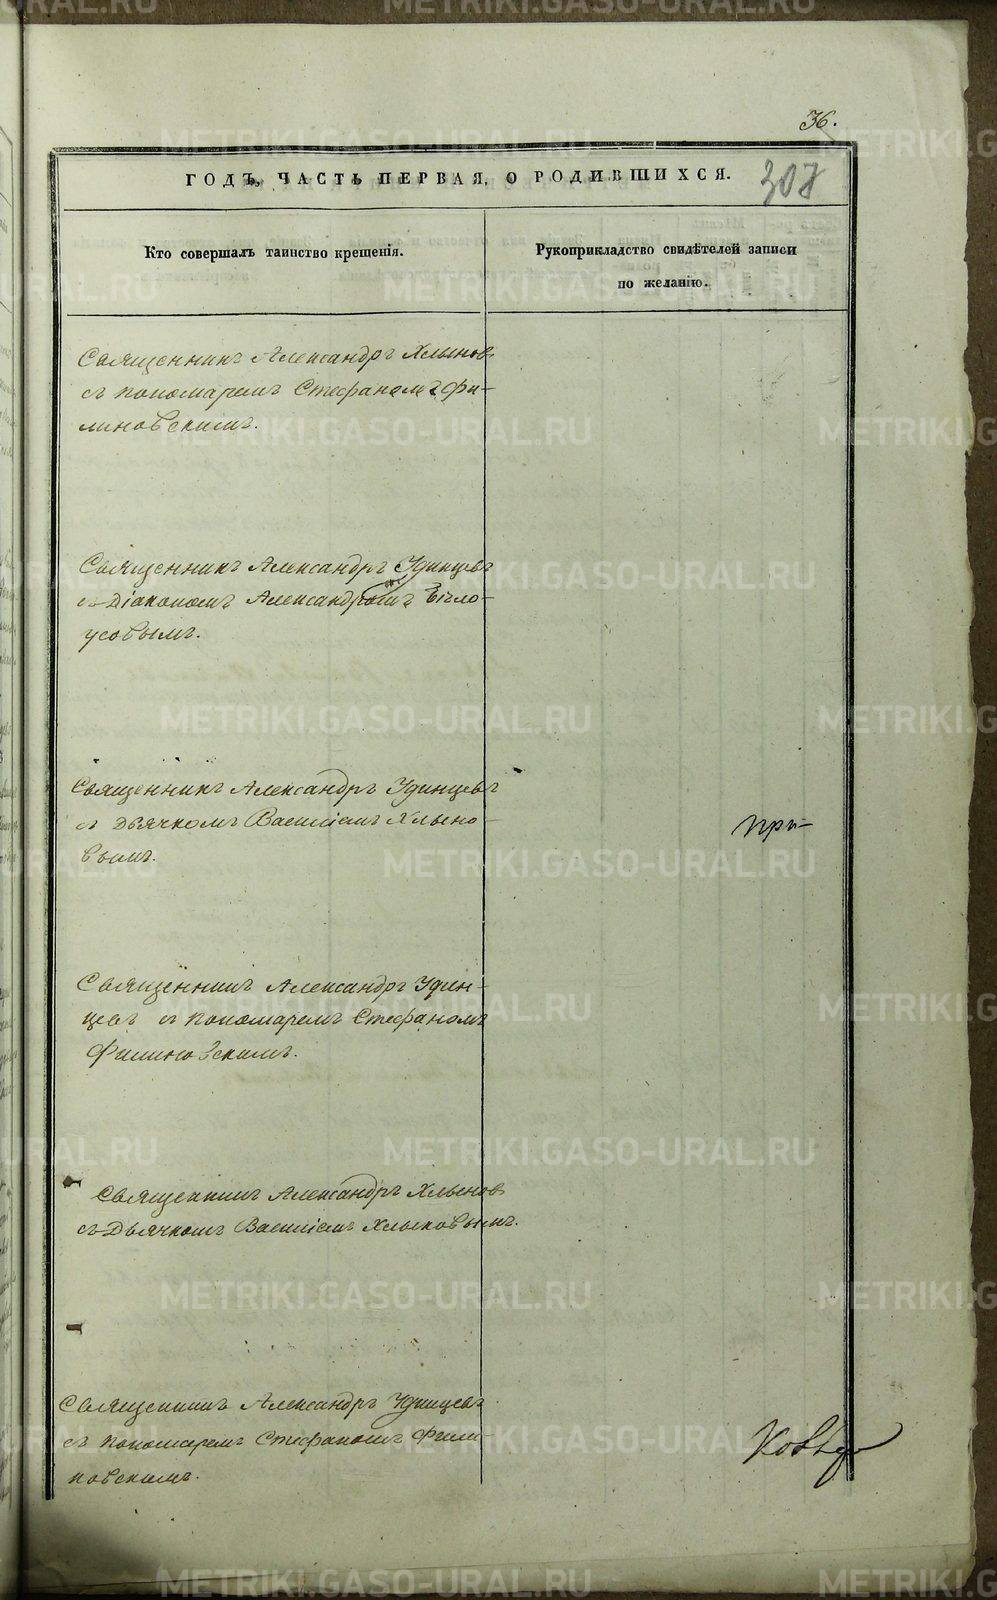 36.
ГОДЪ, ЧАСТЬ ПЕРВАЯ, О РОДИВШИХСЯ.
307
Кто совершалъ таинство крещенія.
Рукоприкладство свидѣтелей записи
по желанію.
Священникъ Александръ Хлыновъ
съ пономаремъ Стефаномъ Фи-
линовскимъ.
Священникъ Александръ Удинцевъ
съ Діакономъ Александромъ Бѣло-
усовымъ.
Священникъ Александръ Удинцевъ
съ дьячкомъ Василіемъ Хлыно-
вымъ.
при-
Священникъ Александръ Удин-
цевъ съ пономаремъ Стефаномъ
Филиновскимъ.
Священникъ Александръ Хлыновъ
съ Дьячкомъ Василіемъ Хлыновымъ.
Священникъ Александръ Удинцевъ
съ пономаремъ Стефаномъ Фили-
новскимъ.
METRIKI.GASO-URAL.RU